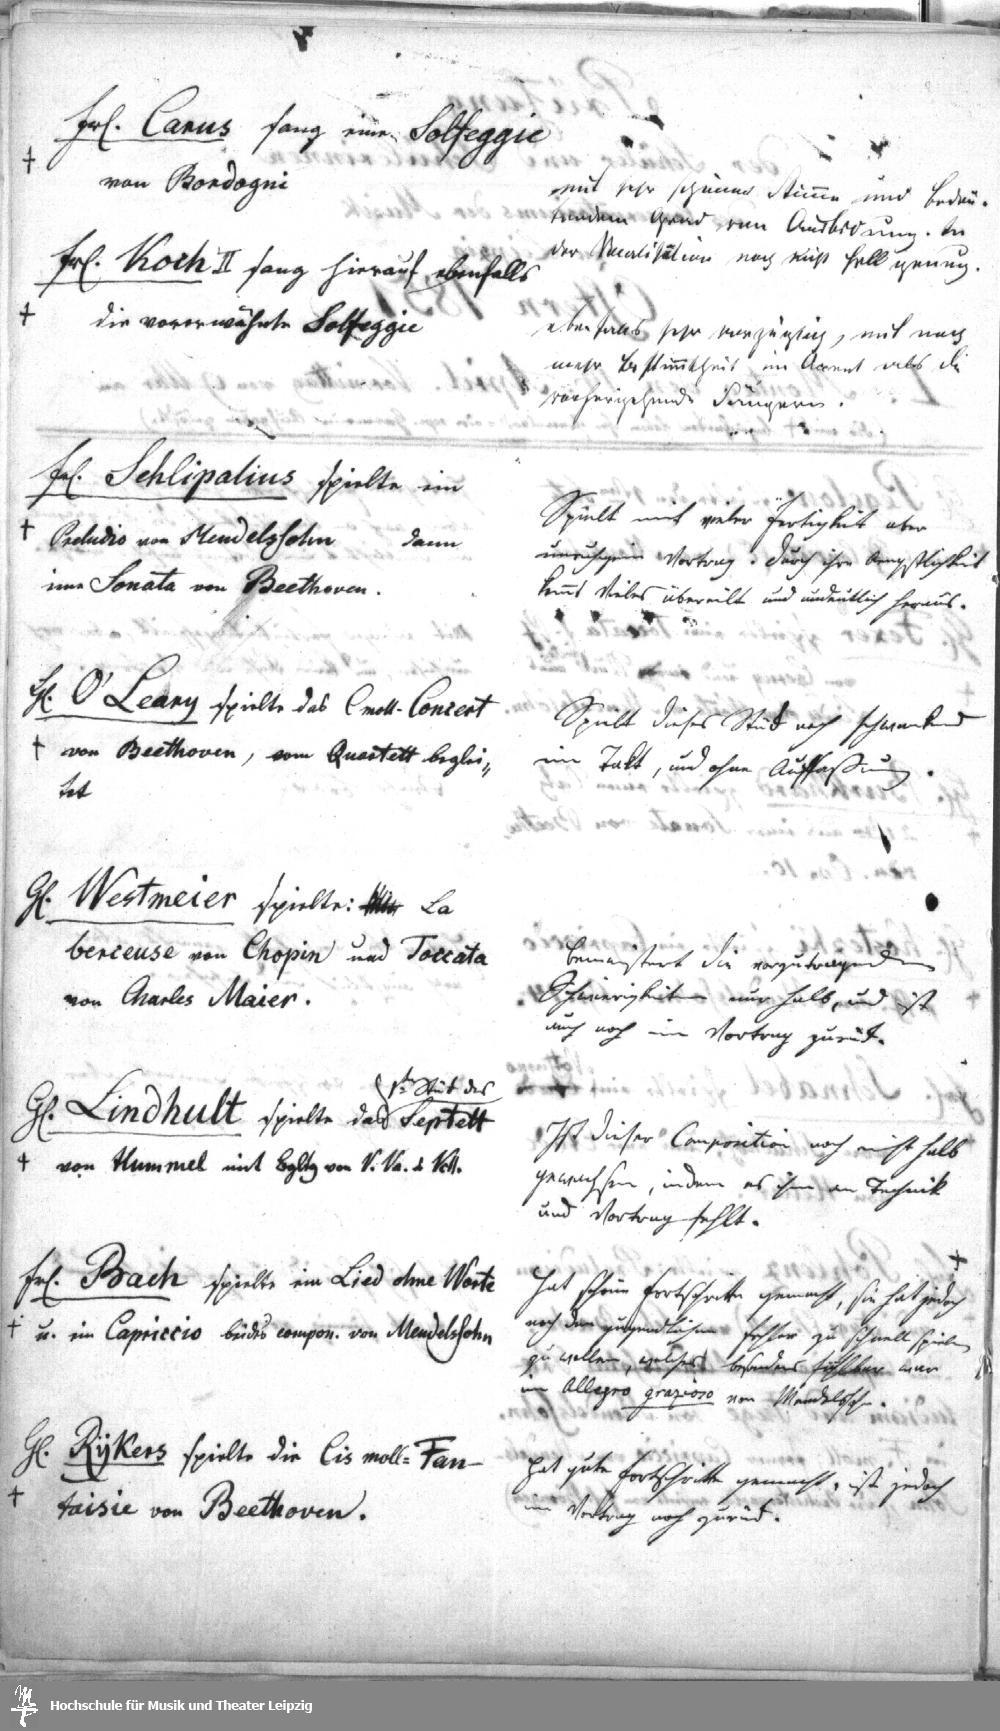 Frl. Carus sang eine Solfeggie
von Bordogni
mit sehr schöner Stimme und bedeu-
tendem Grad von Ausbildung. In
der Vocalisation noch nicht hell genug.
Frl. Koch II sang hierauf ebenfalls
die vorerwähnte Solfeggie
ebenfalls sehr vorzüglich, mit noch
mehr Bestimmtheit im Accent als die
vorhergehende Sängerin.
Frl. Schlipalius spielte ein
Preludio von Mendelssohn dann
eine Sonata von Beethoven.
Spielt mit vieler Fertigkeit aber
unruhigem Vortrag. Durch ihre Aengstlichkeit
kam Vieles übereilt und undeutlich heraus.
Hl. O'Leary spielte das C moll-Concert
von Beethoven, vom Quartett beglei-
tet
Spielt dieses Stück noch schwankend
im Takt, und ohne Auffassung.
Hl. Westmeier spielte: La
berceuse von Chopin und Toccata
von Charles Maier.
bemeistert die vorzutragenden
Schwierigkeiten nur halb, und ist
auch noch im Vortrag zurück.
Hl. Lindhult spielte das 1te Stück des Septett
von Hummel mit Bgltg von V. Va. & Vcll.
Ist dieser Composition noch nicht halb
gewachsen, indem es ihm an Technik
und Vortrag fehlt.
Frl. Bach spielte ein Lied ohne Worte
u. ein Capriccio beides compon. von Mendelssohn
Hat schöne Fortschritte gemacht, sie hat jedoch
noch den jugendlichen Fehler zu schnell spielen
zu wollen, welches besonders fühlbar war
im Allegro grazioso von Mendelssohn.
Hl. Rijkers spielte die Cis moll-Fan-
taisie von Beethoven.
Hat gute Fortschritte gemacht, ist jedoch
im Vortrag noch zurück.
Hochschule für Musik und Theater Leipzig